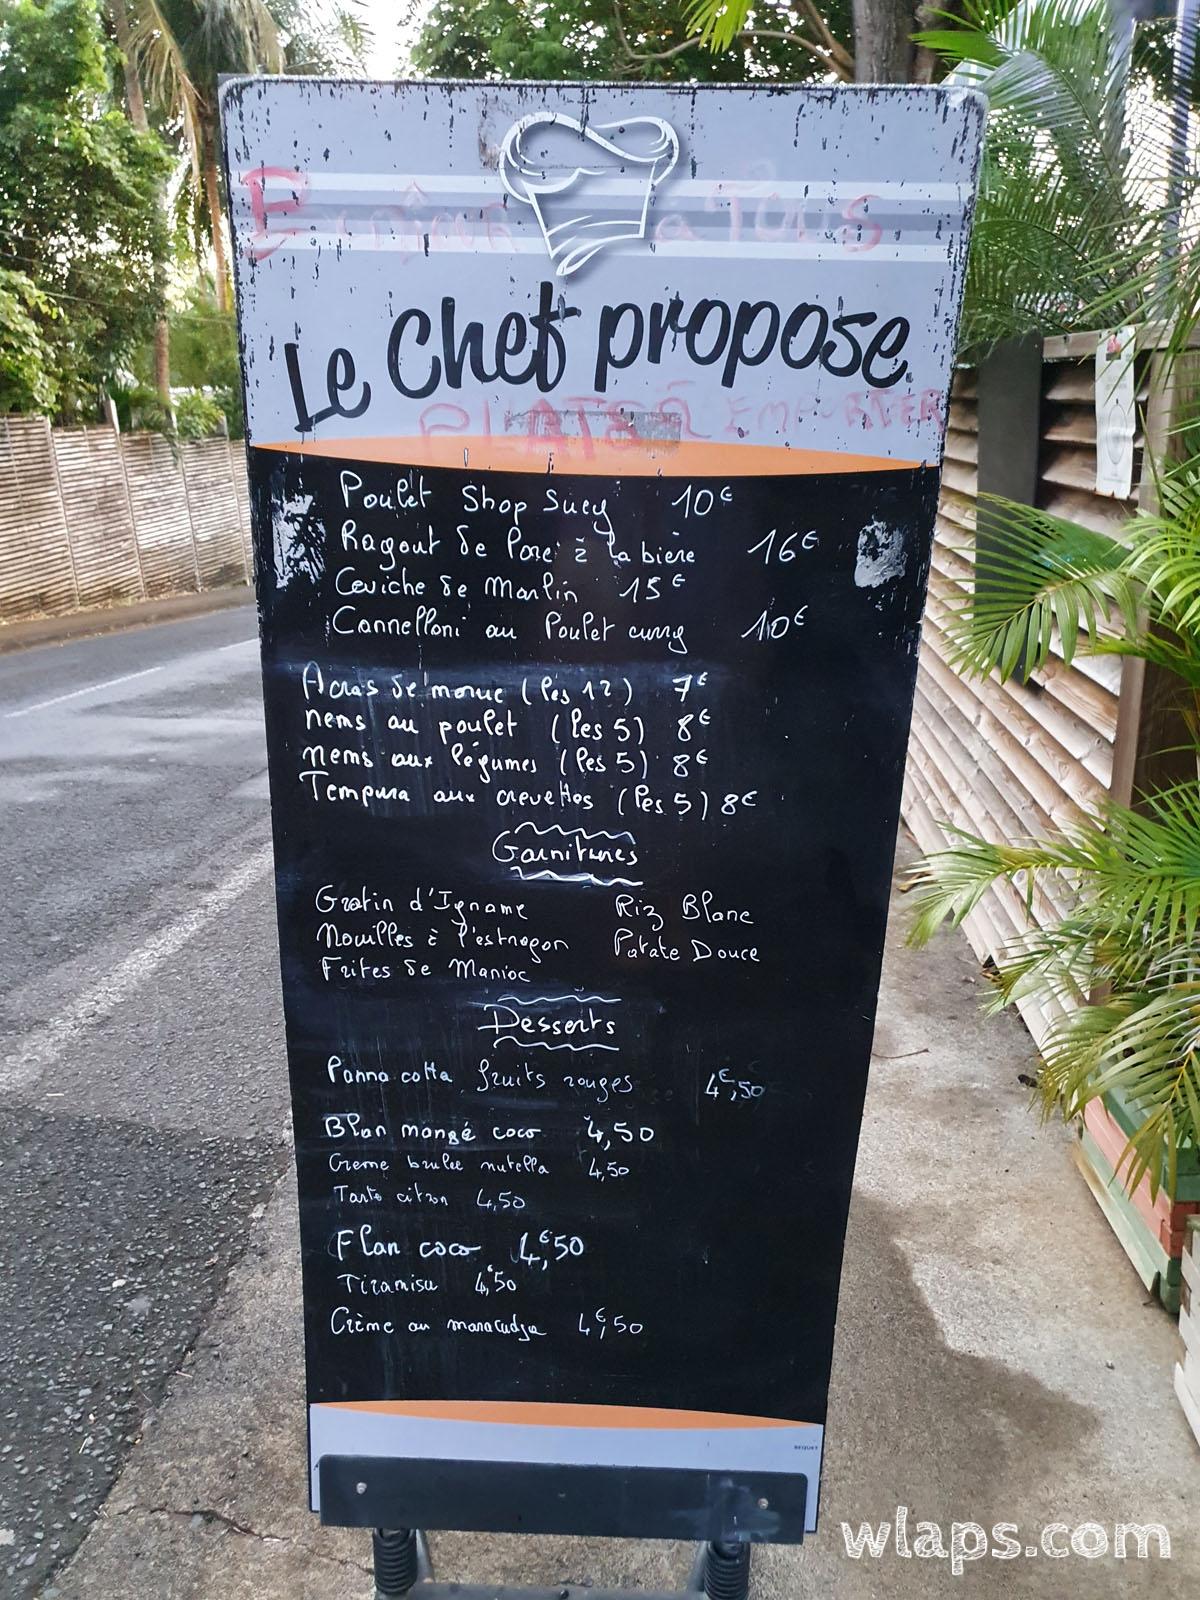 à Tous
Le Chef propose
PLATS À EMPORTER
Poulet Shop Suey 10€
Ragout de Porc à la bière 16€
Ceviche de Marlin 15€
Cannelloni au Poulet curry 10€
Acras de morue (les 12) 7€
nems au poulet (les 5) 8€
nems aux légumes (les 5) 8€
Tempura aux crevettes (les 5) 8€
Garnitures
Gratin d'Igname Riz Blanc
Nouilles à l'estragon Patate Douce
Frites de Manioc
Desserts
Panna cotta fruits rouges 4€,50
Blan mangé coco 4,50
Creme brulee nutella 4,50
Tarte citron 4,50
Flan coco 4€,50
Tiramisu 4€,50
Crème au maracudja 4€,50
BEQUET
wlaps.com